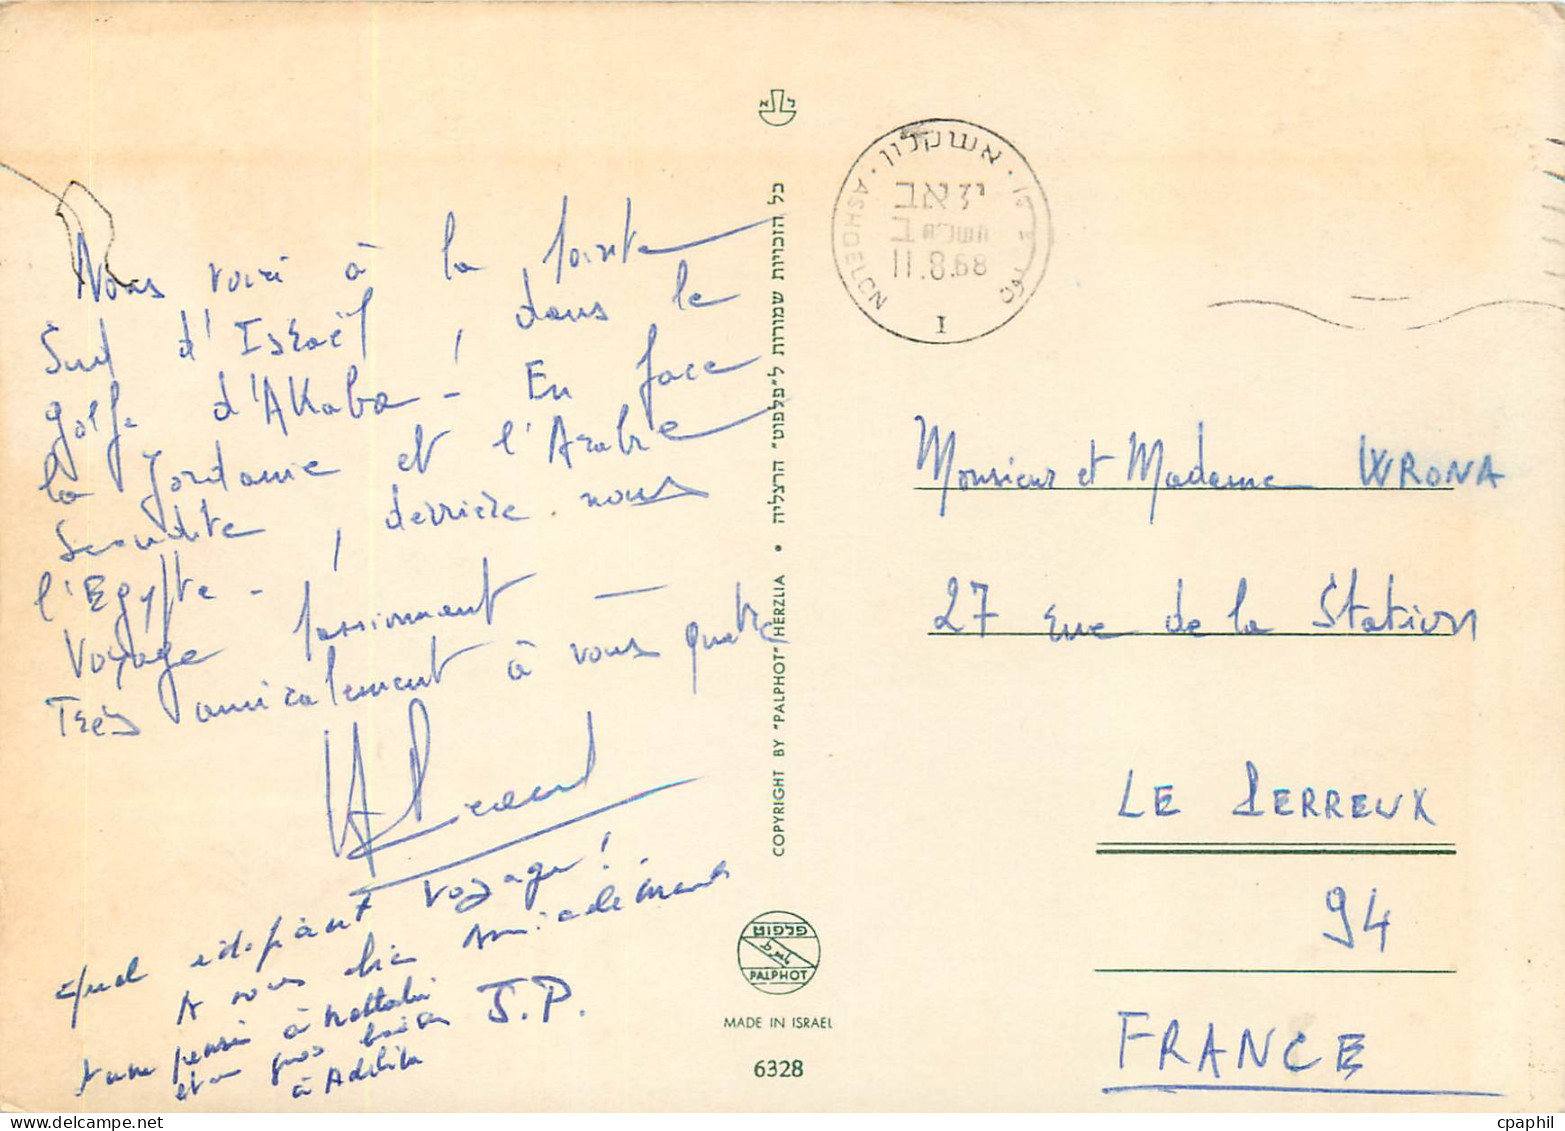 Nous voici à la pointe
Sud d'Israël, dans le
golfe d'Akaba - En face
la Jordanie et l'Arabie
Séoudite, derrière nous
l'Egypte -
Voyage passionnant -
Très amicalement à vous quatre
Quel voyage!
A vous bien amicalement
J.P.
une pensée à Nathalie
et un gros baiser
à
כל הזכויות שמורות ל"פלפוט" הרצליה • COPYRIGHT BY "PALPHOT" HERZLIA
פלפוט
PALPHOT
MADE IN ISRAEL
6328
אשקלון
ASHQELON
יז אב
תשכ"ח
11.8.68
I
Monsieur et Madame WRONA
27 rue de la Station
LE PERREUX
94
FRANCE
www.cpaphil.com
cpaphil